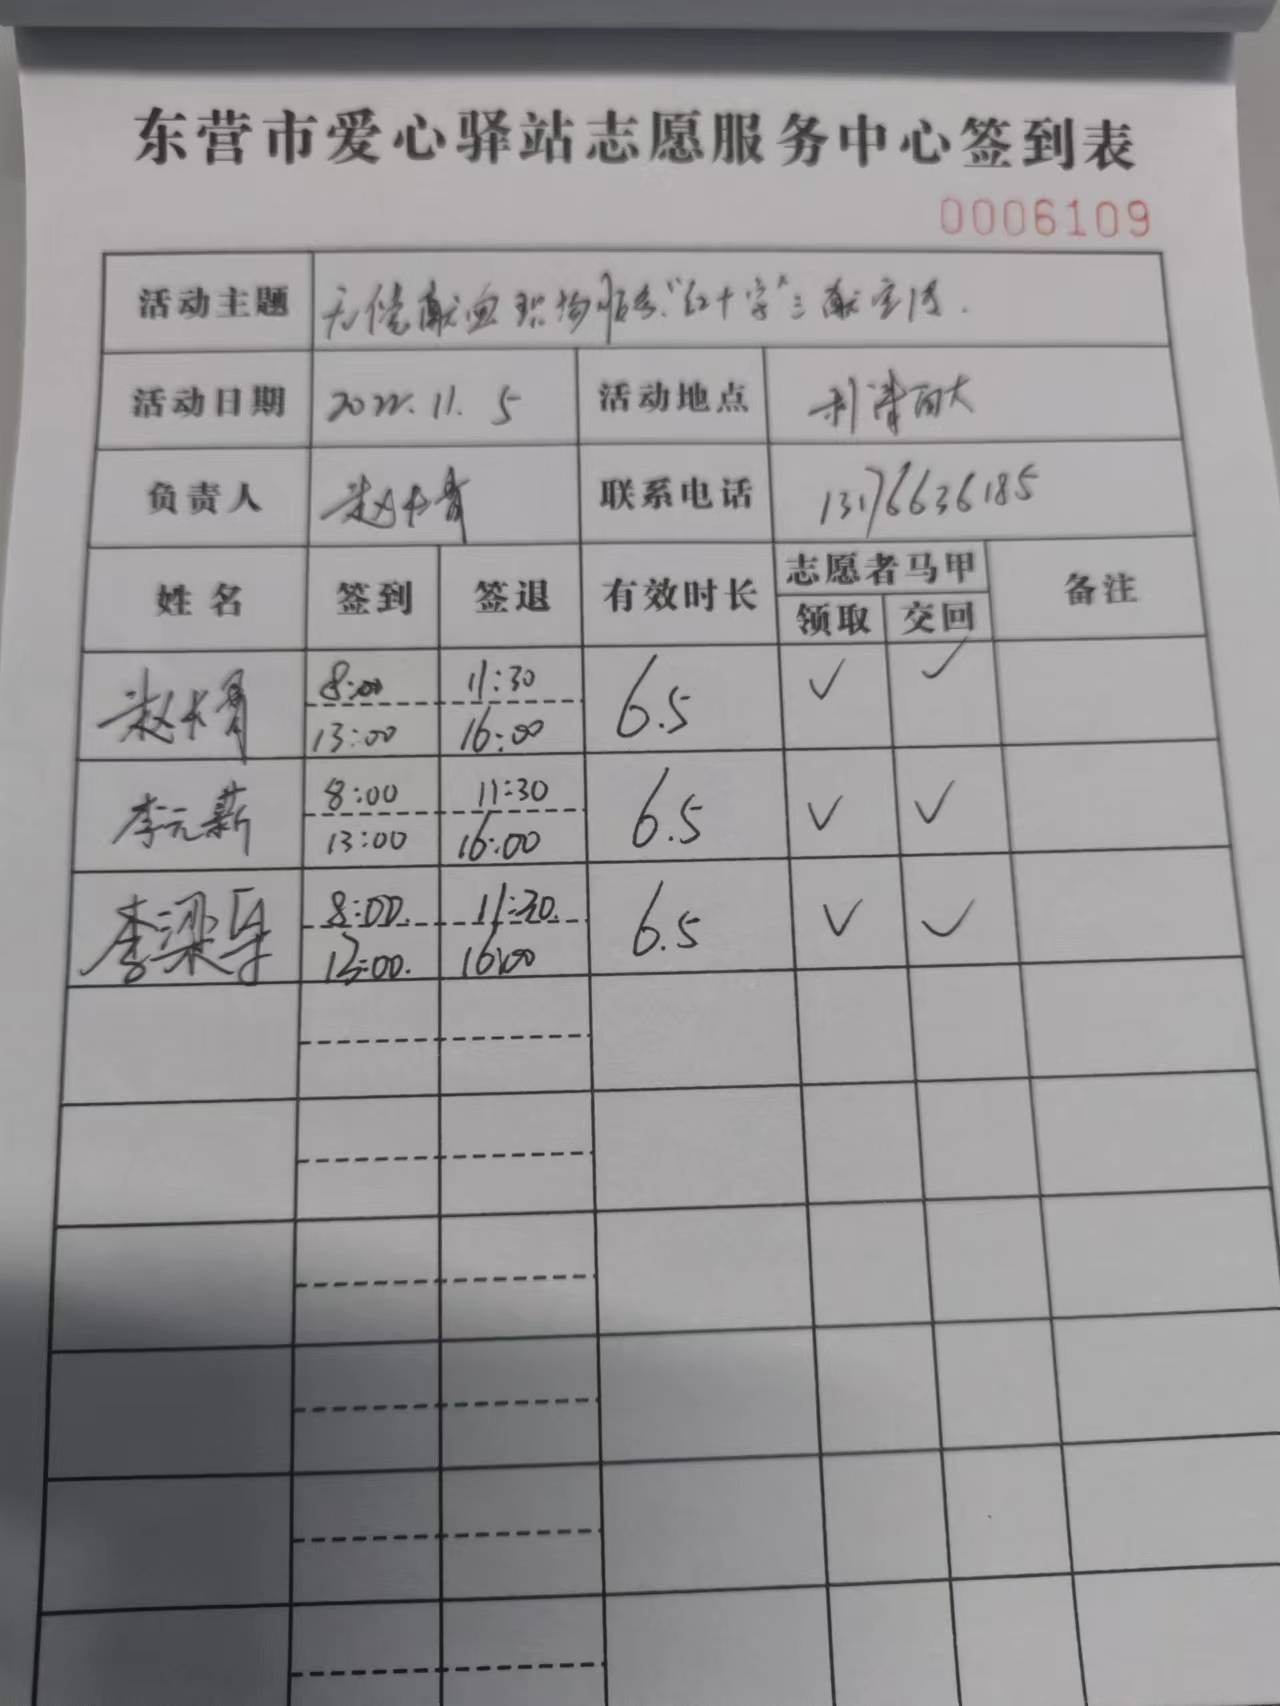 东营市爱心驿站志愿服务中心签到表
0006109
活动主题 无偿献血 服务、"红十字"三献宣传.
活动日期 2022.11.5 活动地点 利津百大
负责人 赵 联系电话 13176636185
姓名 签到 签退 有效时长 志愿者马甲 备注
领取 交回
赵 8:00 11:30 6.5 ✓ ✓
13:00 16:00
李元薪 8:00 11:30 6.5 ✓ ✓
13:00 16:00
李梁 8:00. 11:30. 6.5 ✓ ✓
13:00. 16:00